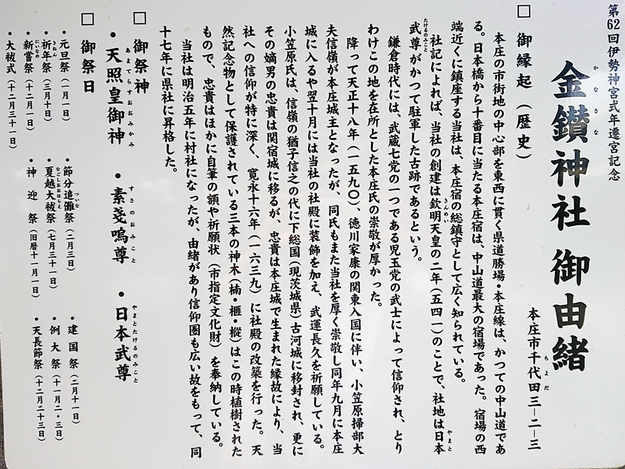 第62回伊勢神宮式年遷宮記念
金鑽神社 御由緒
かなさな
本庄市千代田三-二-三
ちよだ
□ 御縁起（歴史）
本庄の市街地の中心部を東西に貫く県道勝場・本庄線は、かつての中山道であ
る。日本橋から十番目に当たる本庄宿は、中山道最大の宿場であった。宿場の西
端近くに鎮座する当社は、本庄宿の総鎮守として広く知られている。
社記によれば、当社の創建は欽明天皇の二年（五四一）のことで、社地は日本
きんめい
やまと
武尊がかつて駐軍した古跡であるという。
たけるのみこと
鎌倉時代には、武蔵七党の一つである児玉党の武士によって信仰され、とり
わけこの地を在所とした本庄氏の崇敬が厚かった。
降って天正十八年（一五九〇）、徳川家康の関東入国に伴い、小笠原掃部大
夫信嶺が本庄城主となったが、同氏もまた当社を厚く崇敬し同年九月に本庄
城に入るや翌十月には当社の社殿に装飾を加え、武運長久を祈願している。
小笠原氏は、信嶺の猶子信之の代に下総国（現茨城県）古河城に移封され、更に
その嫡男の忠貴は関宿城に移るが、忠貴は本庄城で生まれた縁故により、当
社への信仰が特に深く、寛永十六年（一六三九）に社殿の改築を行った。天
然記念物として保護されている三本の神木（楠・榧・樅）はこの時植樹された
もので、忠貴はほかに自筆の額や祈願状（市指定文化財）を奉納している。
当社は明治五年に村社になったが、由緒があり信仰圏も広い故をもって、同
十七年に県社に昇格した。
□ 御祭神
・天照皇御神 ・素戔嗚尊 ・日本武尊
あまてらすおおみかみ すさのおのみこと やまとたけるのみこと
□ 御祭日
・元旦祭（一月一日） ・節分追儺祭（二月三日） ・建国祭（二月十一日）
ついな
・祈年祭（三月十日） ・夏越大祓祭（七月三十一日） ・例大祭（十一月二・三日）
・新嘗祭（十二月一日） ・神迎祭（旧暦十一月一日） ・天長節祭（十二月二十三日）
・大祓式（十二月三十一日）